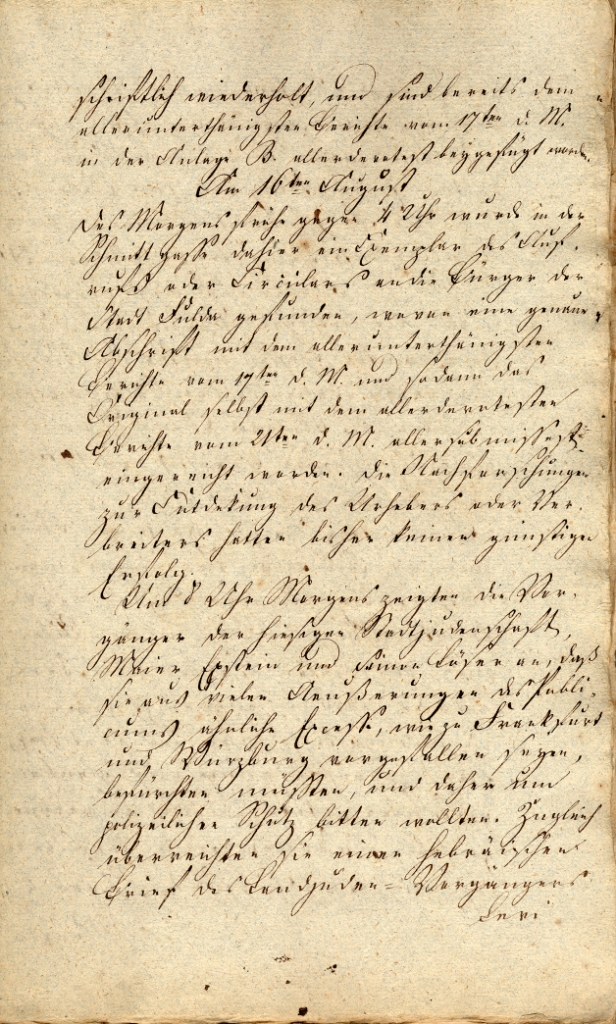 schriftlich wiederholt, und sind bereits dem
allerunterthänigsten Berichte vom 17ten d. M.
in der Anlage B. allerdevotest beygefügt worden.
Am 16ten August
Des Morgens frühe gegen 4 Uhr wurde in der
Schmittgasse dahier ein Exemplar des Auf-
rufs oder Circulars an die Bürger der
Stadt Fulda gefunden, wovon eine genaue
Abschrift mit dem allerunterthänigsten
Berichte vom 17ten d. M. und sodann das
Original selbst mit dem allerdevotesten
Berichte vom 21ten d. M. allersubmissest
eingereicht worden. Die Nachforschungen
zur Entdekung des Urhebers oder Ver-
breiters hatten bisher keinen günstigen
Erfolg.
Um 8 Uhr Morgens zeigten die Vor-
gänger der hiesigen Stadtjudenschaft,
Maier Epstein und Simon Löser an, daß
sie aus vielen Aeußerungen des Publi-
cums ähnliche Excesse, wie zu Frankfurt
und Würzburg vorgefallen seyen,
befürchten müßten, und daher um
polizeilichen Schutz bitten wollten. Zugleich
überreichten sie einen hebräischen
Brief des Landjuden-Vorgängers
Levi